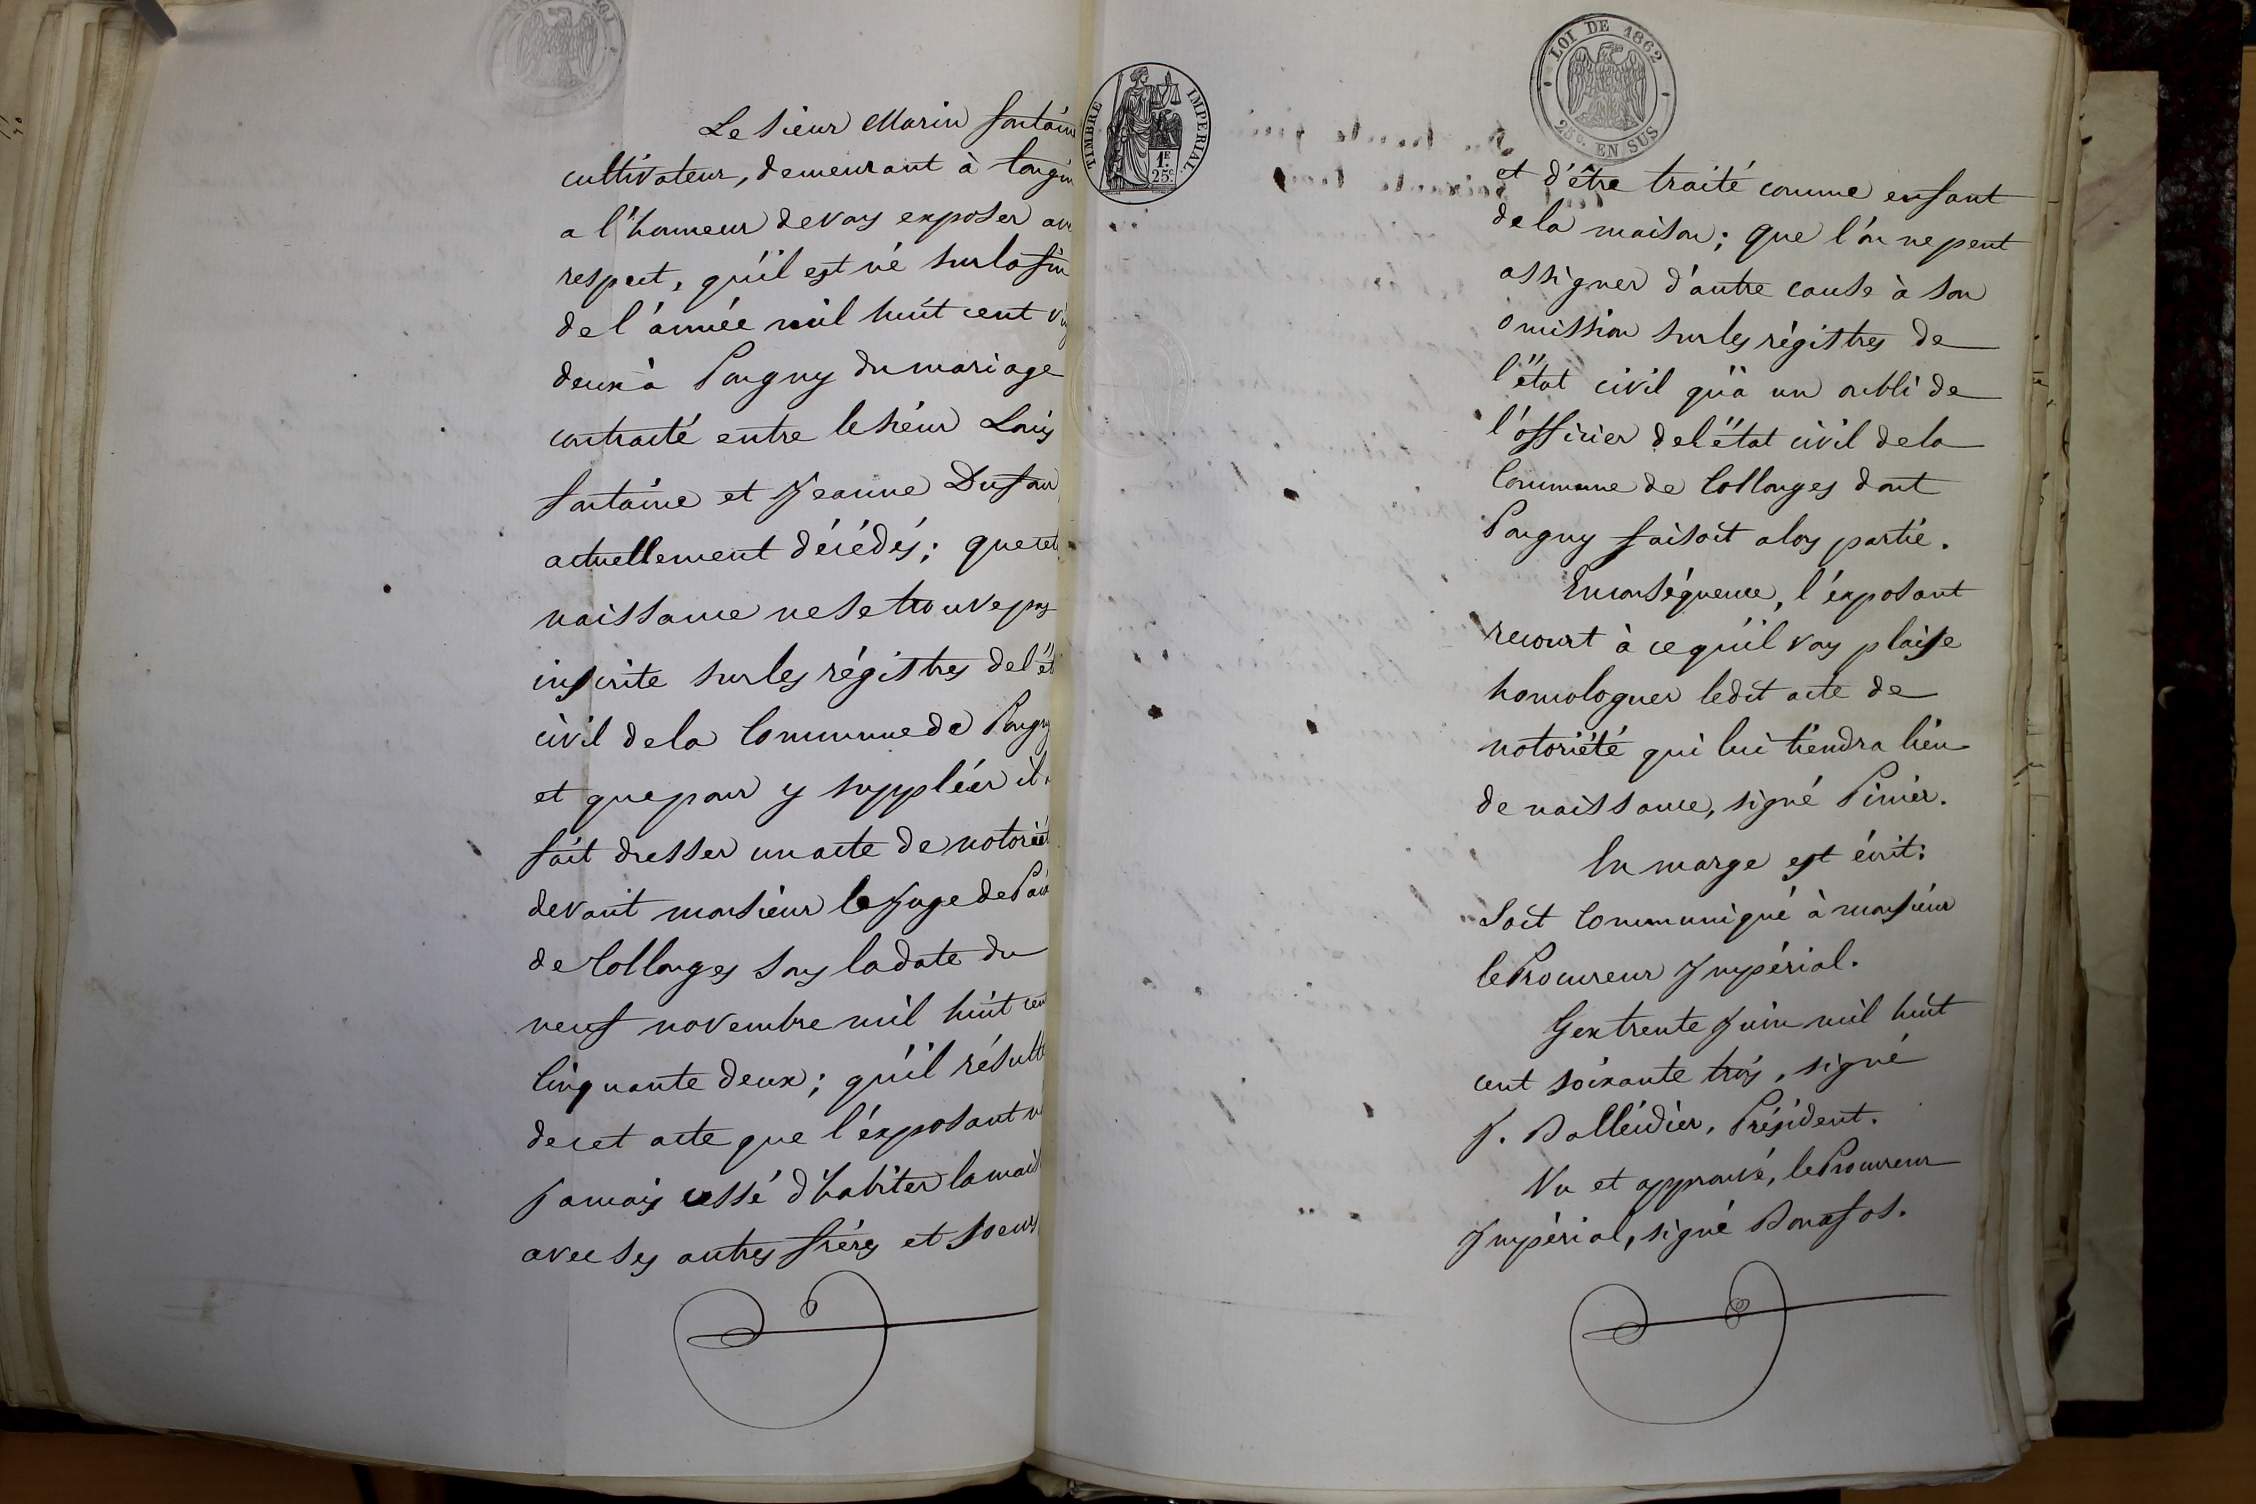 Le sieur Marin fontain
cultivateur, demeurant à
a l'honneur de vous exposer ave
respect, qu'il est né sur la fin
de l'année mil huit cent vin
deux à Pougny du mariage
contracté entre le sieur Louis
fontaine et Jeanne Dufour
actuellement décédés; que cet
naissance ne se trouve pas
inscrite sur les régistres de l'ét
civil de la Commune de Pougny
et que pour y suppléer il a
fait dresser un acte de notoriét
devant monsieur le Juge de Paix
de Collonges sous la date du
neuf novembre mil huit cent
Cinquante deux; qu'il résulte
de cet acte que l'exposant n'
jamais cessé d'habiter la mais
avec ses autres frères et soeurs
TIMBRE IMPERIAL
1F. 25c.
LOI DE 1862
25c. EN SUS
et d'être traité comme enfant
de la maison; que l'on ne peut
assigner d'autre cause à son
omission sur les régistres de
l'état civil qu'à un oubli de
l'officier de l'état civil de la
Commune de Collonges dont
Pougny faisoit alors partie.
En conséquence, l'exposant
recourt à ce qu'il vous plaise
homologuer ledit acte de
notoriété qui lui tiendra lieu
de naissance, signé
En marge est écrit:
Soit Communiqué à monsieur
le Procureur Impérial.
Gex trente Juin mil huit
cent soixante trois, signé
J. Balleidier, Président.
Vu et approuvé, le Procureur
Impérial, signé Bonafos.